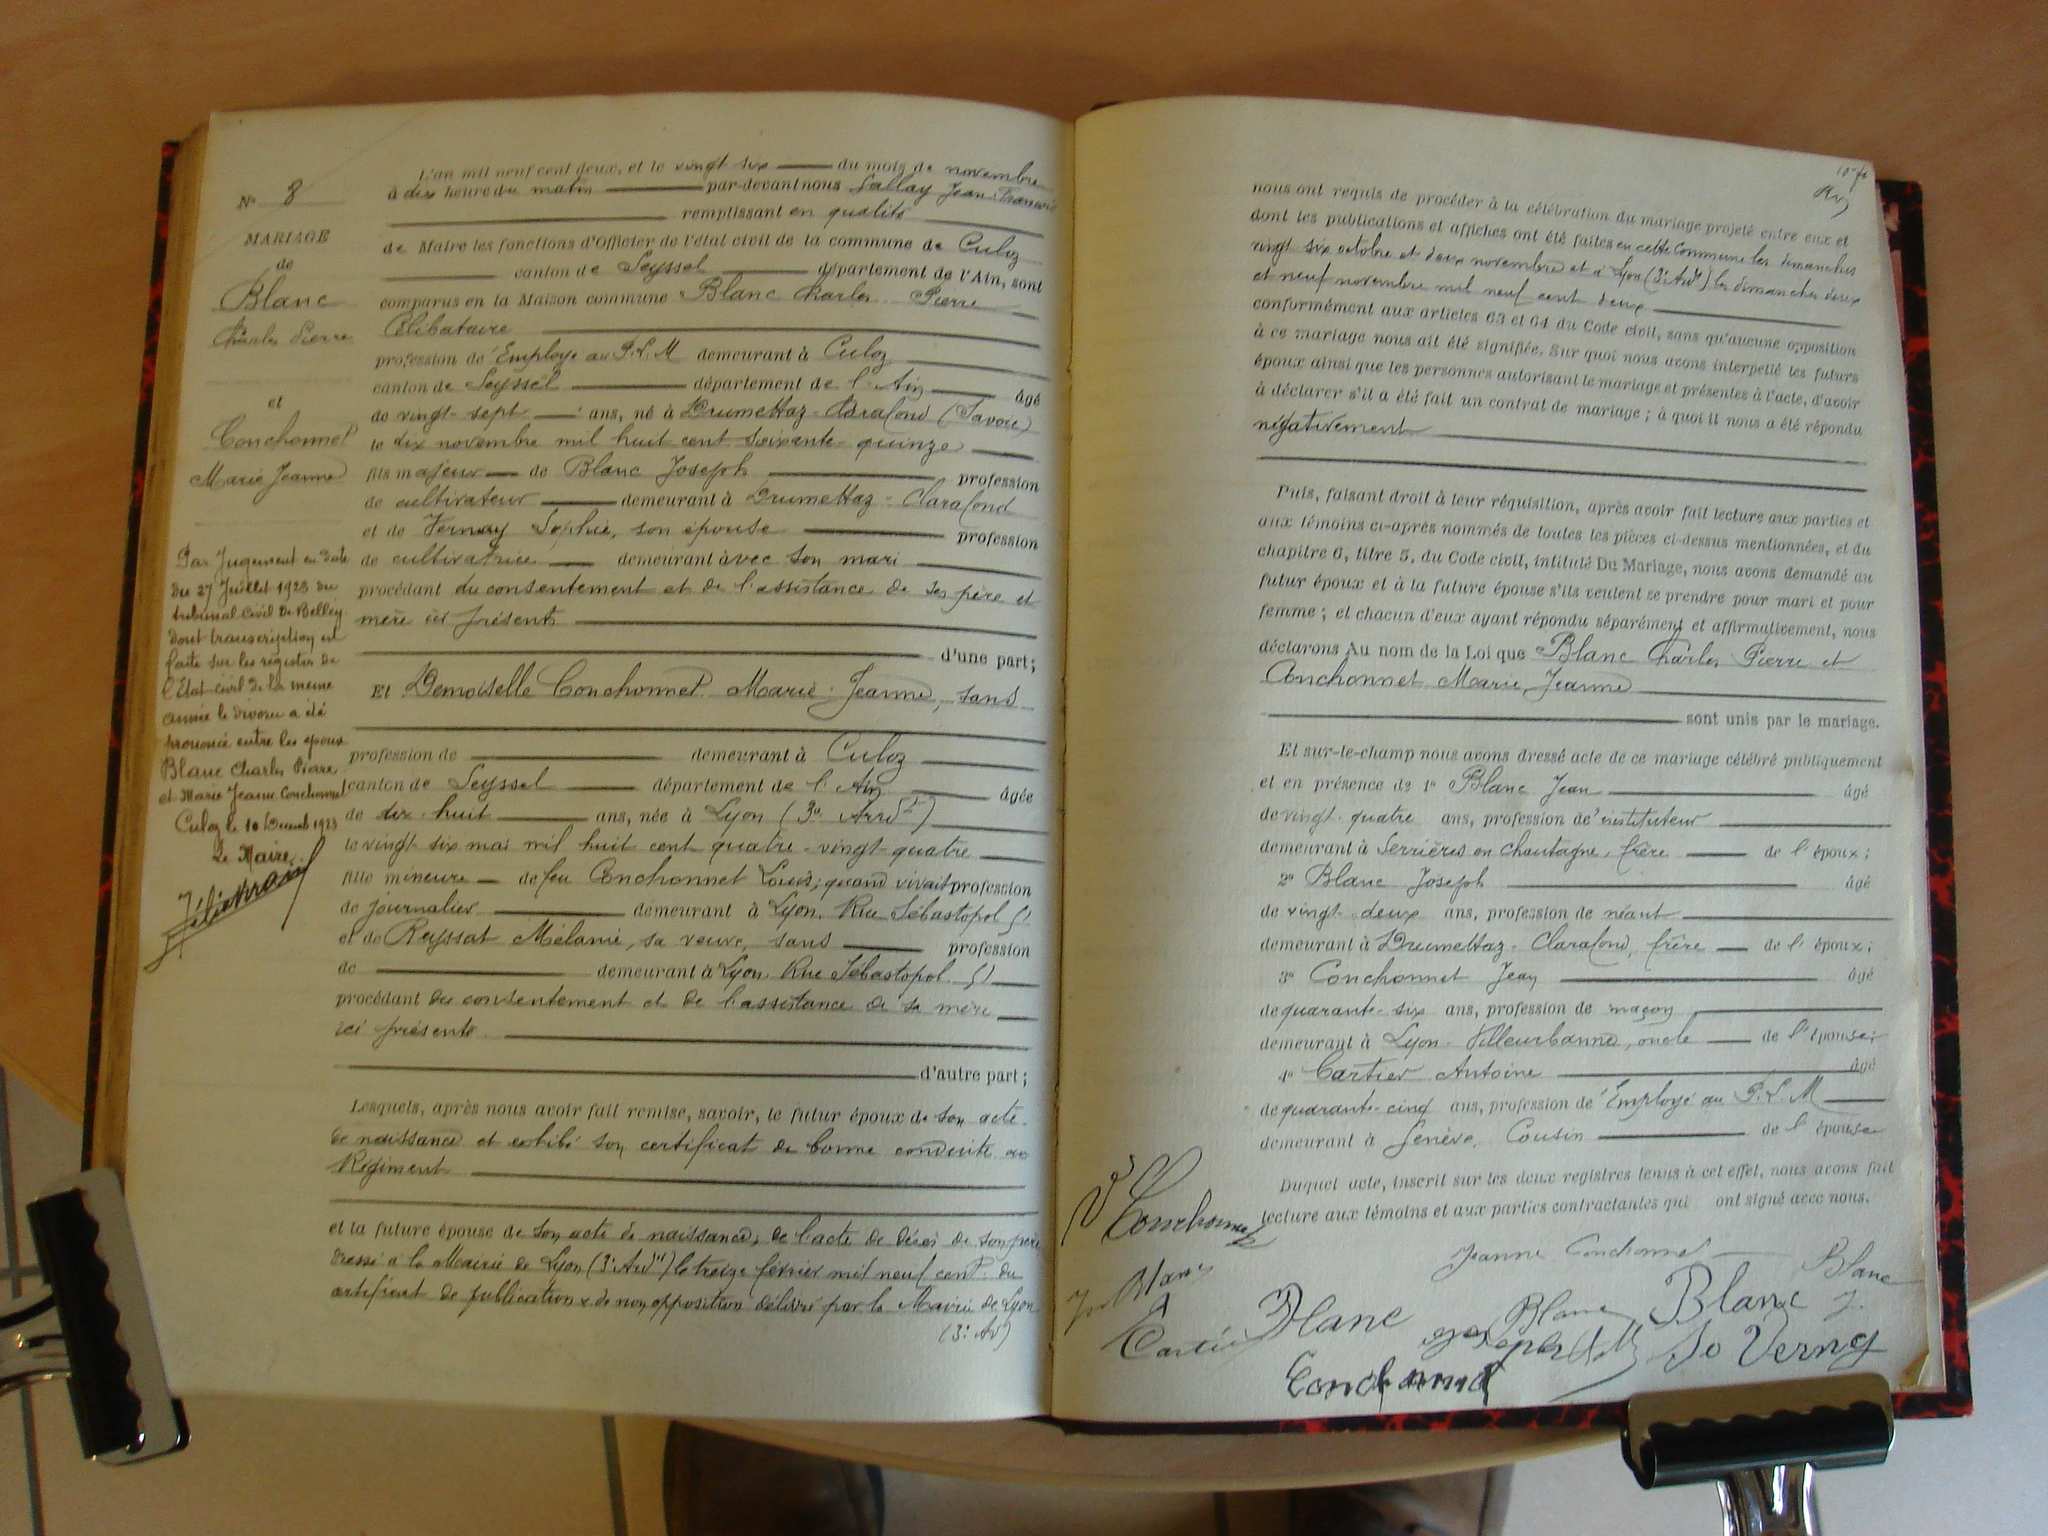 N° 8
MARIAGE
de
Blanc
Charles Pierre
et
Conchonnet
Marie Jeanne
Par Jugement en date
du 27 Juillet 1923 du
tribunal Civil de Belley
dont transcription est
faite sur les registres de
l'État civil de la même
année le divorce a été
prononcé entre les époux
Blanc Charles Pierre
et Marie Jeanne Conchonnet
Culoz le 10 Décemb 1923
Le Maire
L'an mil neuf cent deux, et le vingt six du mois de novembre
à dix heure du matin par-devant nous Lallay Jean-François
remplissant en qualité
de Maire les fonctions d'Officier de l'état civil de la commune de Culoz
canton de Seyssel département de l'Ain, sont
comparus en la Maison commune Blanc Charles Pierre
Célibataire
profession de Employé au P.L.M demeurant à Culoz
canton de Seyssel département de l'Ain âgé
de vingt-sept ans, né à Drumettaz-Clarafond (Savoie)
le dix novembre mil huit cent soixante-quinze
fils majeur de Blanc Joseph profession
de cultivateur demeurant à Drumettaz-Clarafond
et de Vernay Sophie, son épouse profession
de cultivatrice demeurant avec son mari
procédant du consentement et de l'assistance de ses père et
mère ici présents
d'une part;
Et Demoiselle Conchonnet Marie-Jeanne, sans
profession de demeurant à Culoz
canton de Seyssel département de l'Ain âgée
de dix-huit ans, née à Lyon (3e Arrdt)
le vingt six mai mil huit cent quatre-vingt-quatre
fille mineure de feu Conchonnet Louis, quand vivait profession
de journalier demeurant à Lyon, Rue Sébastopol 51
et de Reyssat Mélanie, sa veuve, sans profession
de demeurant à Lyon Rue Sébastopol 51
procédant du consentement et de l'assistance de sa mère
ici présente
d'autre part;
Lesquels, après nous avoir fait remise, savoir, le futur époux de son acte
de naissance et exhibé son certificat de bonne conduite au
Régiment
et la future épouse de son acte de naissance, de l'acte de décès de son père
dressé à la Mairie de Lyon (3e Ardt) le treize février mil neuf cent du
certificat de publication & de non opposition délivré par la Mairie de Lyon
(3e Ar)
nous ont requis de procéder à la célébration du mariage projeté entre eux et
dont les publications et affiches ont été faites en cette Commune les dimanches
vingt six octobre et deux novembre et à Lyon (3e Ardt) les dimanches deux
et neuf novembre mil neuf cent deux
conformément aux articles 63 et 64 du Code civil, sans qu'aucune opposition
à ce mariage nous ait été signifiée. Sur quoi nous avons interpellé les futurs
époux ainsi que les personnes autorisant le mariage et présentes à l'acte, d'avoir
à déclarer s'il a été fait un contrat de mariage; à quoi il nous a été répondu
négativement
Puis, faisant droit à leur réquisition, après avoir fait lecture aux parties et
aux témoins ci-après nommés de toutes les pièces ci-dessus mentionnées, et du
chapitre 6, titre 5, du Code civil, intitulé Du Mariage, nous avons demandé au
futur époux et à la future épouse s'ils veulent se prendre pour mari et pour
femme; et chacun d'eux ayant répondu séparément et affirmativement, nous
déclarons Au nom de la Loi que Blanc Charles Pierre et
Conchonnet Marie Jeanne
sont unis par le mariage.
Et sur-le-champ nous avons dressé acte de ce mariage célébré publiquement
et en présence de 1° Blanc Jean âgé
de vingt-quatre ans, profession de instituteur
demeurant à Serrières en Chautagne, frère de l'époux;
2° Blanc Joseph âgé
de vingt-deux ans, profession de néant
demeurant à Drumettaz-Clarafond, frère de l'époux;
3° Conchonnet Jean âgé
de quarante-six ans, profession de maçon
demeurant à Lyon-Villeurbanne, oncle de l'épouse;
4° Cartier Antoine âgé
de quarante-cinq ans, profession de Employé au P.L.M
demeurant à Genève, Cousin de l'épouse
Duquel acte, inscrit sur les deux registres tenus à cet effet, nous avons fait
lecture aux témoins et aux parties contractantes qui ont signé avec nous.
Conchonnet
Jeanne Conchonnet
Blanc
J.
Blanc
Blanc
Blanc
Blanc
Cartier
Conchonnet